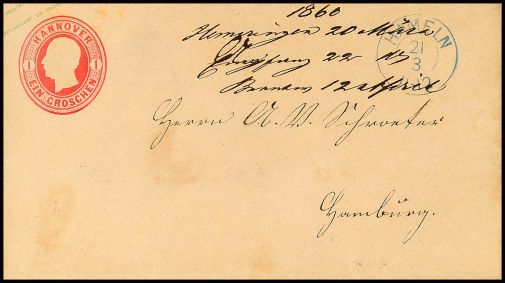 HANNOVER
1 1
EIN GROSCHEN
1860
Hemeringen 20 März
Empfang 22
Beantw 12 April
HEMELN
21
3
Herrn A. V. Schroeter
Hamburg.